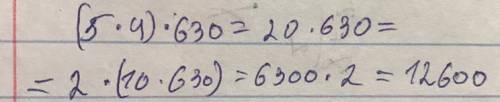 (5·4)·630=20·630=
=2·(10·630)=6300·2=12600